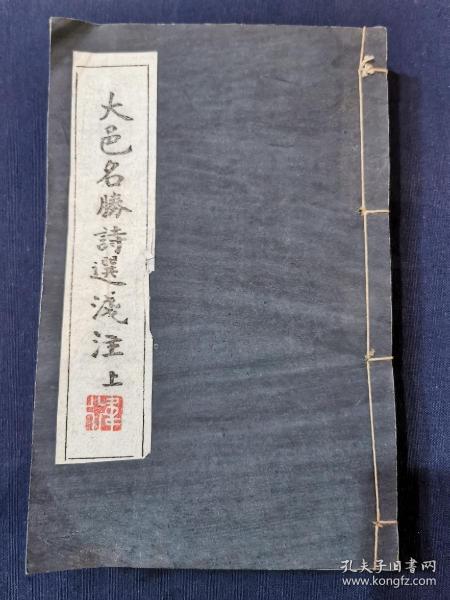 大邑名勝詩選淺注 上
孔夫子旧书网
www.kongfz.com